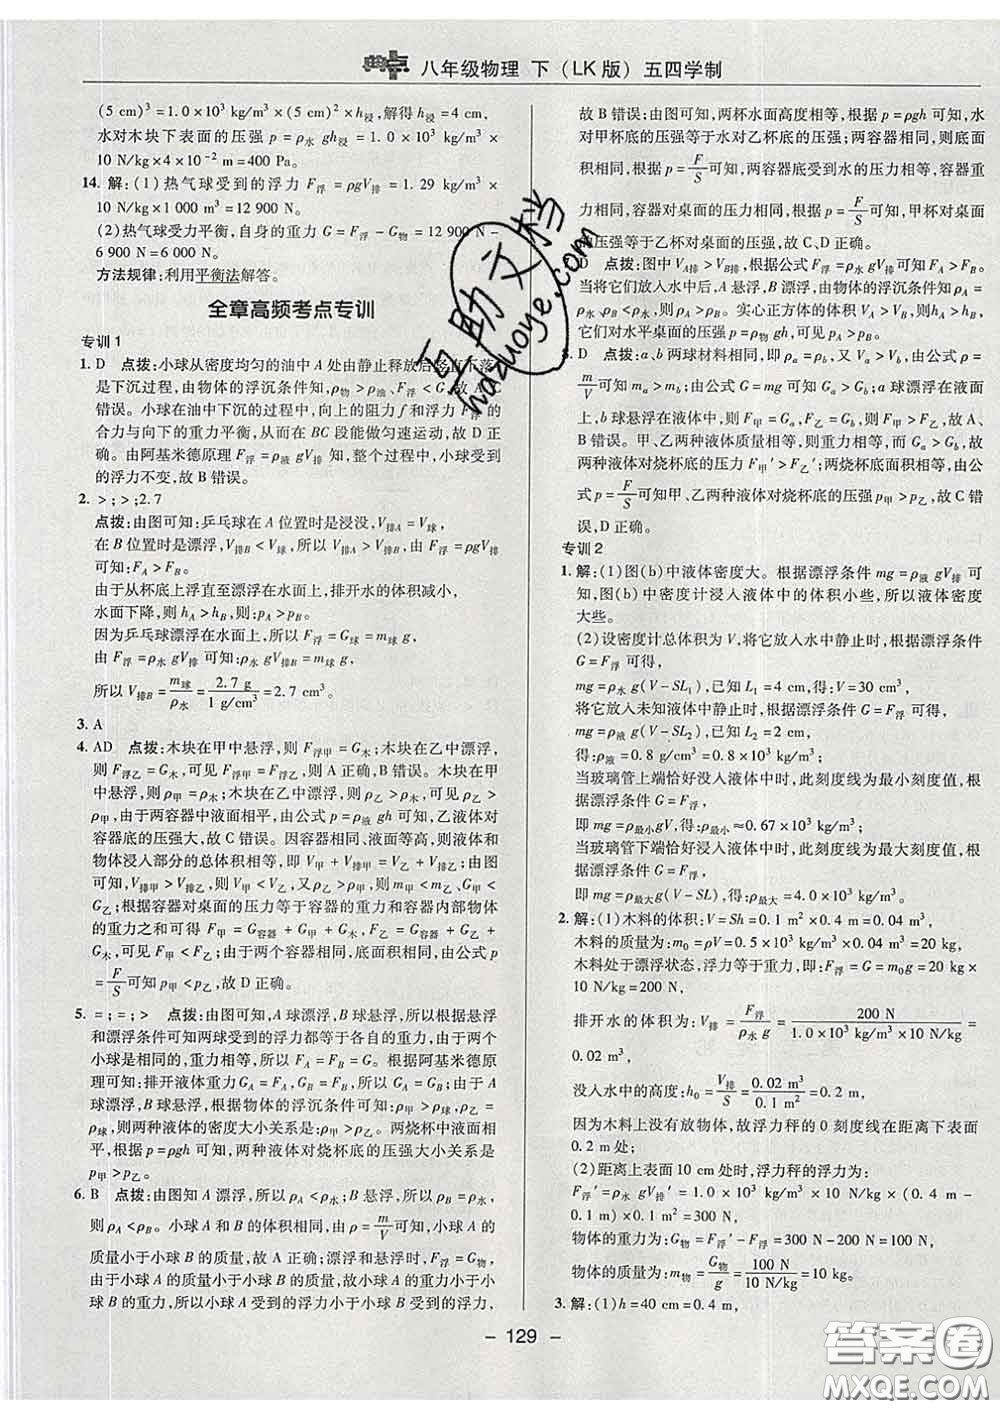 典点 八年级物理 下（LK版）五四学制
(5 cm)³=1.0×10³ kg/m³×10 N/kg×(5 cm)²×h浸,解得 h浸=4 cm,
水对木块下表面的压强 p=ρ水 gh浸=1.0×10³ kg/m³×
10 N/kg×4×10⁻² m=400 Pa。
14. 解:(1)热气球受到的浮力 F浮=ρgV排=1.29 kg/m³×
10 N/kg×1 000 m³=12 900 N。
(2)热气球受力平衡,自身的重力 G=F浮-G物=12 900 N-
6 900 N=6 000 N。
方法规律:利用平衡法解答。
全章高频考点专训
专训1
1. D 点拨:小球从密度均匀的油中A处由静止释放后竖直下落,
是下沉过程,由物体的浮沉条件知,ρ物>ρ油、F浮<G,故A、C
错误。小球在油中下沉的过程中,向上的阻力f和浮力F浮的
合力与向下的重力平衡,从而在BC段能做匀速运动,故D正
确。由阿基米德原理F浮=ρ液 gV排 知,整个过程中,小球受到
的浮力不变,故B错误。
2. >;>;2.7
点拨:由图可知:乒乓球在A位置时是浸没,V排A=V球,
在B位置时是漂浮,V排B<V球,所以V排A>V排B,由F浮=ρgV排
可知:FA>FB。
由从杯底上浮直至漂浮在水面上,排开水的体积减小,
水面下降,则hA>hB,则:pA>pB。
因为乒乓球漂浮在水面上,所以F浮=G球=m球 g,
由 F浮=ρ水 gV排 可知:ρ水 gV排B=m球 g,
所以 V排B=m球/ρ水=2.7 g/1 g/cm³=2.7 cm³。
3. A
4. AD 点拨:木块在甲中悬浮,则F浮甲=G木;木块在乙中漂浮,
则F浮乙=G木,可见F浮甲=F浮乙,则A正确,B错误。木块在甲
中悬浮,则ρ甲=ρ木;木块在乙中漂浮,则ρ乙>ρ木,可知ρ乙>
ρ甲,由于两容器中液面相平,由公式p=ρ液 gh可知,乙液体对
容器底的压强大,故C错误。因容器相同、液面等高,则液体和
物体浸入部分的总体积相等,即V甲+V排甲=V乙+V排乙;由图
可知,V排甲>V排乙,则V甲<V乙,又ρ乙>ρ甲,则m甲<m乙,G甲<
G乙;根据容器对桌面的压力等于容器的重力和容器内部物体
的重力之和可得 F甲=G容器+G甲+G木,F乙=G容器+G乙+
G木,可见F甲<F乙;由于两个容器相同,底面积相同,由公式p
=F/S可知p甲<p乙,故D正确。
5. =;=;> 点拨:由图可知,A球漂浮,B球悬浮,所以根据悬浮
和漂浮条件可知两球受到的浮力都等于各自的重力,由于两个
小球是相同的,重力相等,所以FA=FB=G。根据阿基米德原
理可知:排开液体重力GA=FA,GB=FB,所以GA=GB;由于A
球漂浮,B球悬浮,根据物体的浮沉条件可知:ρ甲>ρ球,ρ乙=
ρ球,则两种液体的密度大小关系是:ρ甲>ρ乙。两烧杯中液面相
平,根据p=ρgh可知,两种液体对烧杯底的压强大小关系是
p甲>p乙。
6. B 点拨:由图知A漂浮,所以ρA<ρ水;B悬浮,所以ρB=ρ水,
则ρA<ρB。小球A和B的体积相同,由ρ=m/V可知,小球A的
质量小于小球B的质量,故A正确;漂浮和悬浮时,F浮=G物,
由于小球A的质量小于小球B的质量,故小球A的重力小于小
球B的重力,所以小球A受到的浮力小于小球B受到的浮力,
故B错误;由图可知,两杯水面高度相等,根据p=ρgh可知,水
对甲杯底的压强等于水对乙杯底的压强;两容器相同,则底面
积相同,根据p=F/S可知,两容器底受到水的压力相等,容器重
力相同,容器对桌面的压力相同,根据p=F/S可知,甲杯对桌面
的压强等于乙杯对桌面的压强,故C、D正确。
点拨:图中V排A>V排B,根据公式F浮=ρ液 gV排可知FA>FB。
当将它们放入水中后,A悬浮,B漂浮,由物体的浮沉条件知ρA=
ρ水,ρB<ρ水,所以ρA>ρB。实心正方体的体积VA>VB,所以
它们对水平地面的压强由p=ρ物 gh可知,pA>pB。
D 点拨:a、b两球材料相同,即ρa=ρb,又Va>Vb,由公式ρ=
m/V可知ma>mb;由公式G=mg可知Ga>Gb;a球漂浮在液面
上,b球悬浮在液体中,则F甲=Ga,F乙=Gb,则F甲>F乙,故A、
B错误。甲、乙两种液体质量相等,则重力相等,而Ga>Gb,故
两种液体对烧杯底的压力F甲′>F乙′;两烧杯底面积相等,由公
式p=F/S可知甲、乙两种液体对烧杯底的压强p甲>p乙,故C错
误,D正确。
专训2
1. 解:(1)图(b)中液体密度大。根据漂浮条件mg=ρ液 gV排 可
知,图(b)中密度计浸入液体中的体积小些,所以液体密度
大些。
(2)设密度计总体积为V,将它放入水中静止时,根据漂浮条件
G=F浮可得,
mg=ρ水 g(V-SL₁),已知L₁=4 cm,得:V=30 cm³,
将它放入未知液体中静止时,根据漂浮条件G=F浮可得,
mg=ρ液 g(V-SL₂),已知L₂=2 cm,
得:ρ液=0.8 g/cm³=0.8×10³ kg/m³,
当玻璃管上端恰好没入液体中时,此刻度线为最小刻度值,根
据漂浮条件G=F浮,
即mg=ρ最小 gV,得:ρ最小≈0.67×10³ kg/m³,
当玻璃管下端恰好没入液体中时,此刻度线为最大刻度值,根
据漂浮条件G=F浮,
即mg=ρ最大 g(V-SL),得:ρ最大=4.0×10³ kg/m³。
2. 解:(1)木料的体积:V=Sh=0.1 m²×0.4 m=0.04 m³,
木料的质量为:m₀=ρV=0.5×10³ kg/m³×0.04 m³=20 kg,
木料处于漂浮状态,浮力等于重力,即:F浮=G=m₀g=20 kg
×10 N/kg=200 N,
排开水的体积为:V排=F浮/ρ水 g=200 N/1.0×10³ kg/m³×10 N/kg=
0.02 m³,
没入水中的高度:h₀=V排/S=0.02 m³/0.1 m²=0.2 m,
因为木料上没有放物体,故浮力秤的0刻度线在距离下表面
0.2 m处;
(2)距离上表面10 cm处时,浮力秤的浮力为:
F浮′=ρ水 gV排′=1.0×10³ kg/m³×10 N/kg×(0.4 m-
0.1 m)×0.1 m²=300 N,
物体的重力为:G物=F浮′-F浮=300 N-200 N=100 N,
物体的质量为:m物=G物/g=100 N/10 N/kg=10 kg。
3. 解:(1)h=40 cm=0.4 m,
- 129 -
互助文档
huzhuoye.com
答案圈
MXQE.COM